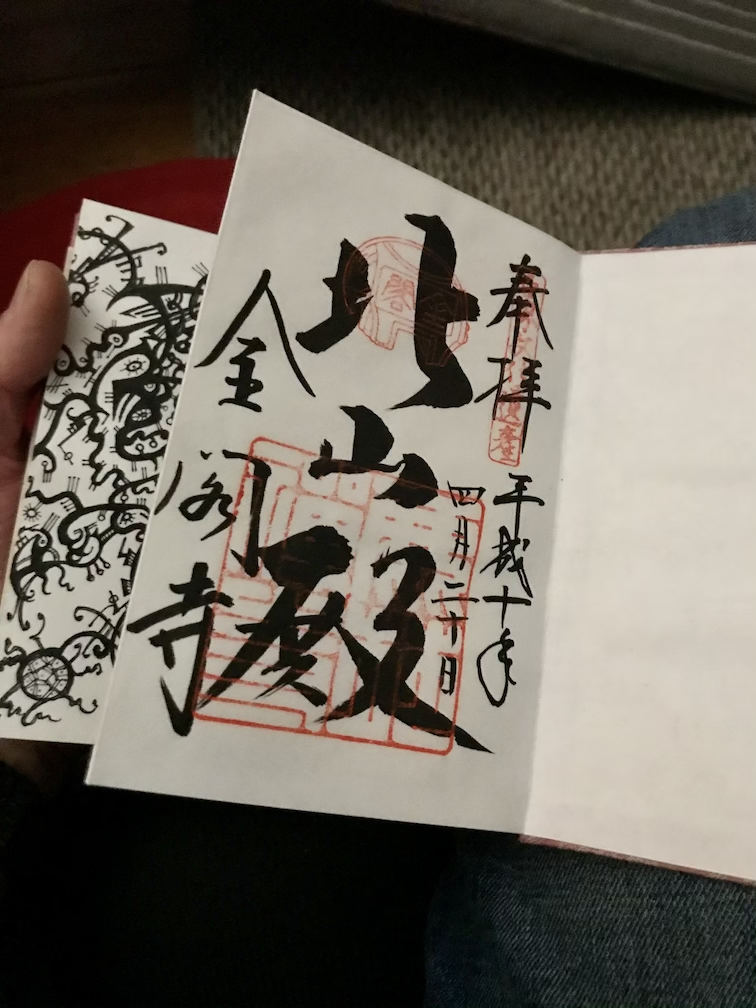 奉拝
平成十年
四月二十日
北山殿
金閣寺